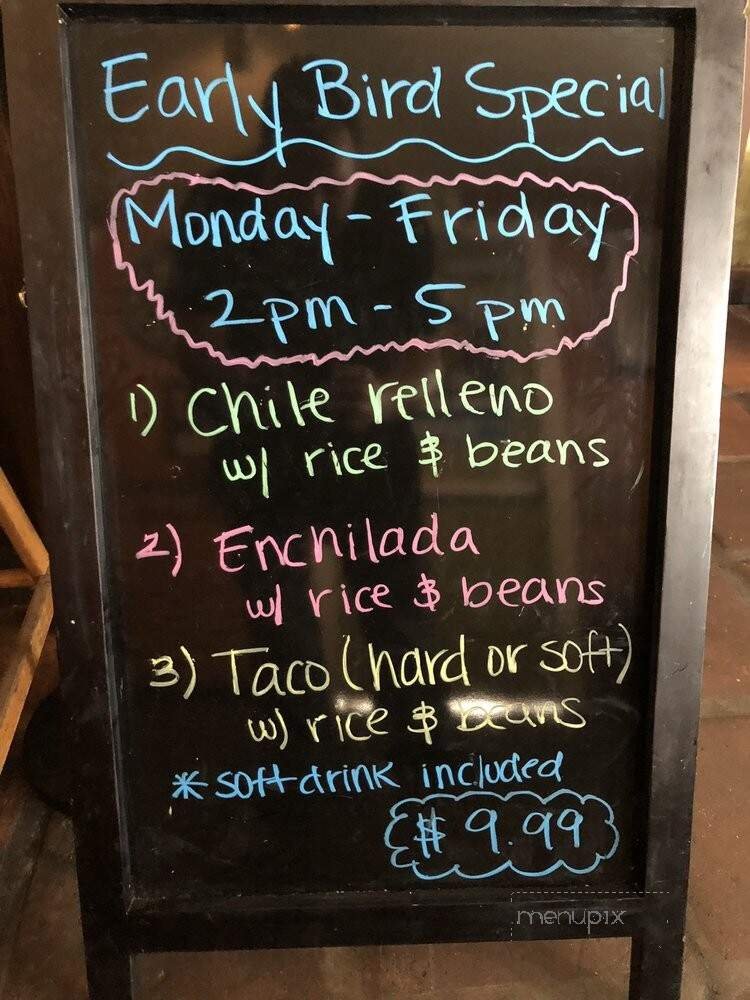 Early Bird Special
Monday - Friday
2pm - 5pm
1) Chile relleno
w/ rice & beans
2) Enchilada
w/ rice & beans
3) Taco (hard or soft)
w/ rice & beans
* soft drink included
$ 9.99
menupix